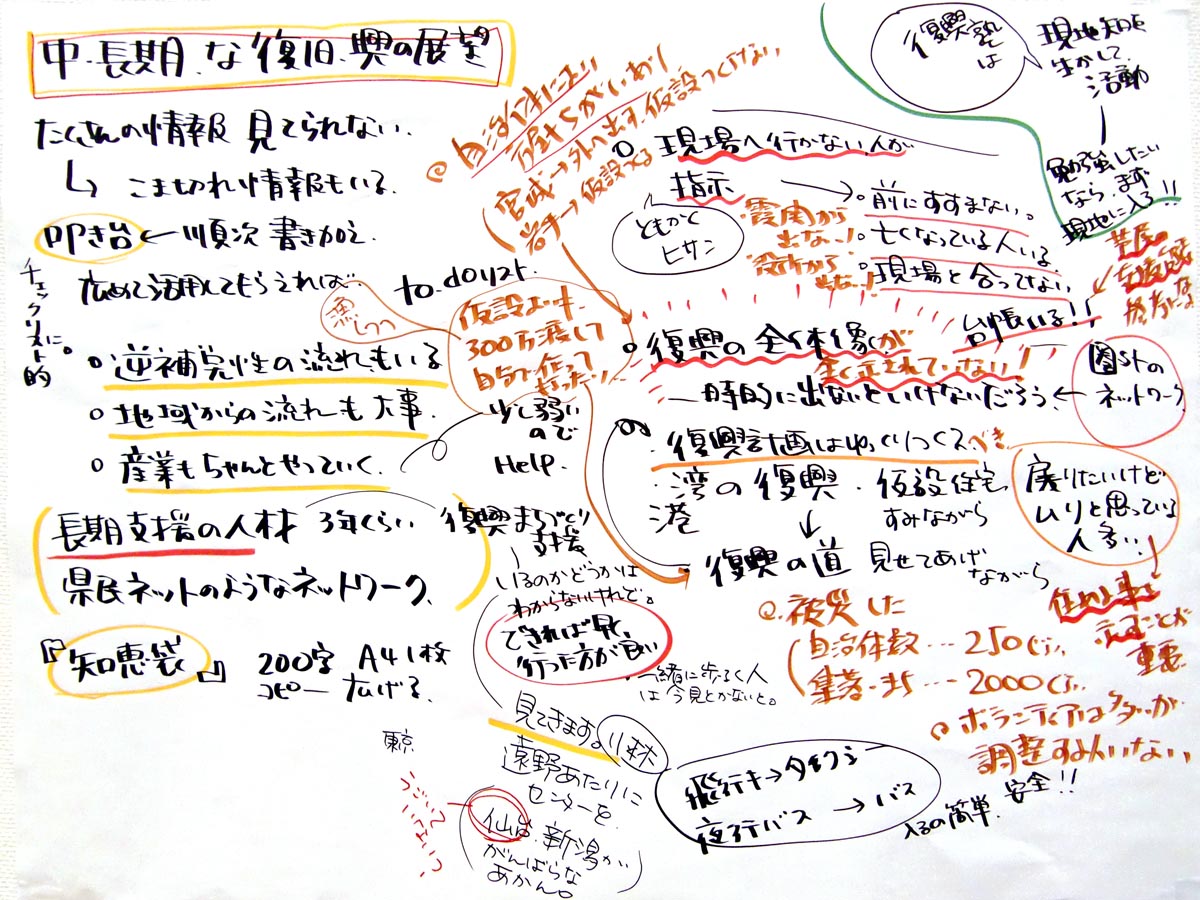 中・長期な復旧・興の展望
たくさんの情報 見てられない.
こま切れ情報もいる.
叩き台 ← 順次 書き加え
広めて活用してもらえれば.
チェックリスト的に。
逆補完性の流れもいる
地域からの流れも大事.
産業もちゃんとやっていく.
長期支援の人材 3年くらい
県民ネットのようなネットワーク.
『知恵袋』 200字 A4 1枚
コピー 広げる.
自治体によい
宮城→外へ出す.仮設つくらない
岩手→仮設つくる
to do
仮設より
300万渡して
少し弱い
ので
Help.
復興まちづくり
支援
いるのかどうかは
わからないけれど。
できれば早く
行った方が良い
一緒に歩く人
は今見とかないと。
見てきます。小林
東京
遠野あたりに
センターを.
仙台.新潟が
がんばらな
あかん。
復興塾
は
現地知を
生かして
活動
勉強したい
なら、まず
現地に入る!!
現場へ行かない人が
指示
ともかく
ヒサン
前にすすまない。
亡くなっている人いる.
現場と合ってない
霞関から
出ない!
役所から
台帳いる!!
復興の全体像が
全く示されていない!
一時的に出ないといけないだろう.
圏外の
ネットワーク
復興計画はゆっくりつくるべき
湾の復興・仮設住宅
港
すみながら
復興の道 見せてあげ
ながら
戻りたいけど
ムリと思っている
人多い.
示すことが
重要
被災した
自治体数…250くらい
集落・まち…2000くらい
ボランティアは多いが
調整する人いない
飛行キ→タクシー
夜行バス → バス
入るの簡単. 安全!!